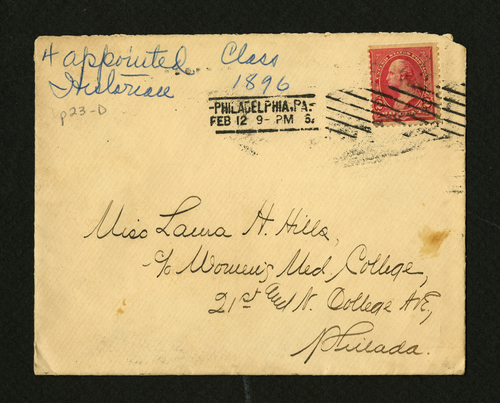 4 appointed Class
Historian 1896
p23-D
PHILADELPHIA, PA.
FEB 12 9-PM 6.
Miss Laura H. Hills,
c/o Women's Med. College,
21st and N. College Ave,
Philada.